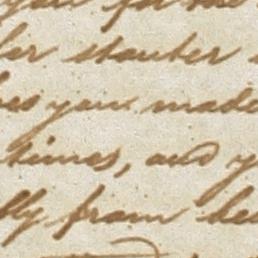 you for the
ler stouter
es you made
times, and y
lly from he